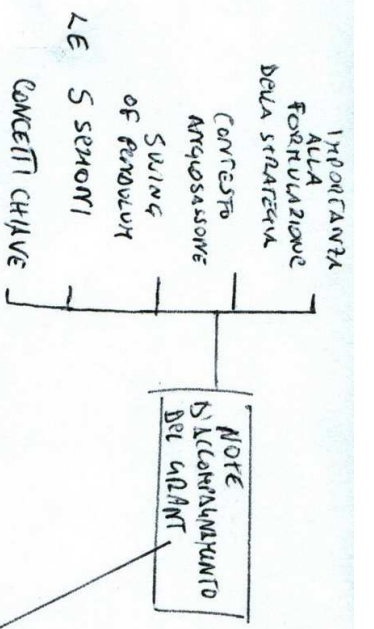 IMPORTANZA
ALLA
FORMULAZIONE
DELLA STRATEGIA
CONTESTO
ANGLOSASSONE
SWING
OF PENDULUM
LE 5 SEZIONI
CONCETTI CHIAVE
NOTE
D'ACCOMPAGNAMENTO
DEL GRANT